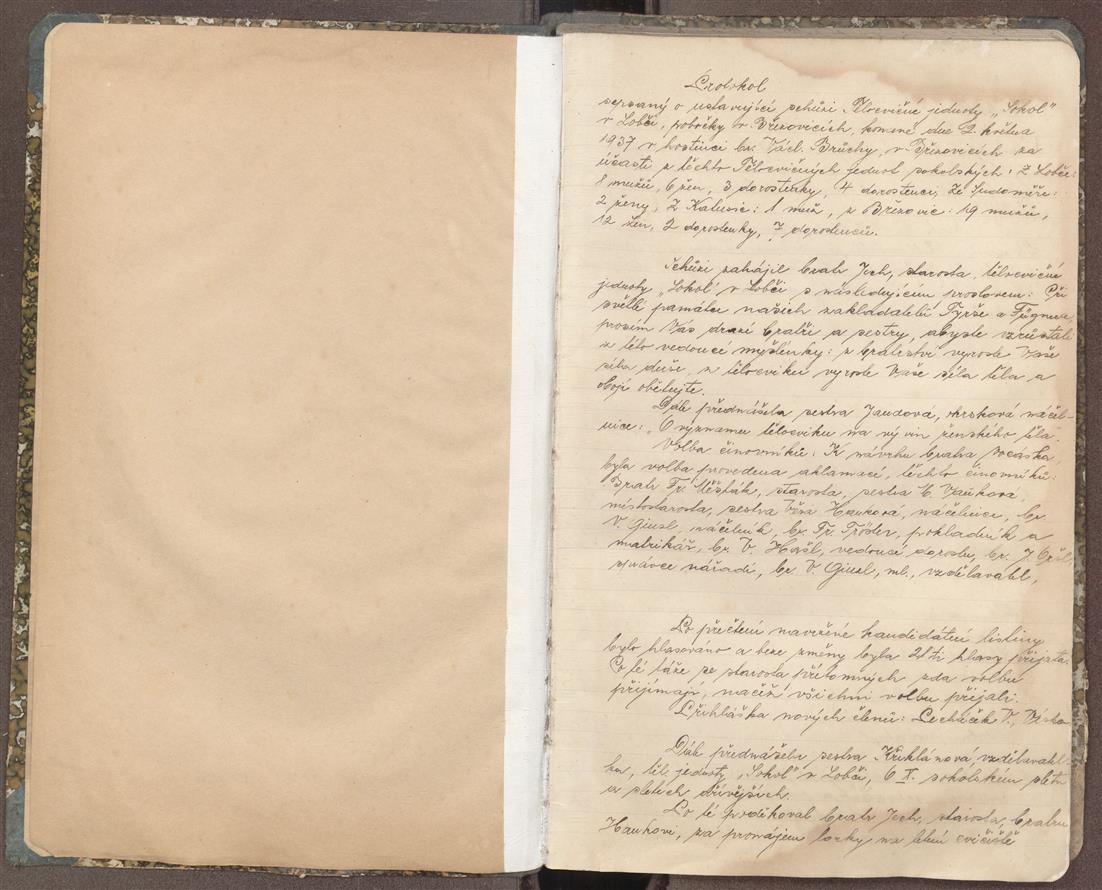 Protokol
sepsaný o ustavující schůzi Tělocvičné jednoty „Sokol"
v Lobči, pobočky v Březovicích, konané dne 2. května
1937 v hostinci br. Václ. Brůchy, v Březovicích za
účasti z těchto Tělocvičných jednot sokolských: Z Lobče:
8 mužů, 6 žen, 3 dorostenky, 4 dorostenci, Ze Sudoměře:
2 ženy, Z Katusic: 1 muž, z Březovic: 19 mužů,
12 žen, 2 dorostenky, 7 dorostenců.
Schůzi zahájil bratr Jech, starosta tělocvičné
jednoty „Sokol" v Lobči s následujícím proslovem: Při
světlé památce našich zakladatelů Tyrše a Fügnera
prosím Vás drazí bratři a sestry, abyste vzrůstali
z této vedoucí myšlénky: z bratrství vyroste Vaše
síla duše, z tělocviku vyroste Vaše síla těla a
obojí obětujte.
Dále přednášela sestra Jandová, okrsková náčel-
nice: „O významu tělocviku na vývin ženského těla.
Volba činovníků: K návrhu bratra Vocáska,
byla volba provedena aklamací, těchto činovníků:
Bratr Fr. Měšťák, starosta, sestra M. Vaňková,
místostarosta, sestra Věra Hanková, náčelnice, br.
V. Ginzl, náčelník, br. Fr. Tröster, pokladník a
matrikář, br. V. Horšl, vedoucí dorostu, br. J.
správce nářadí, br. V. Ginzl, ml., vzdělavatel,
Po přečtení navržené kandidátní listiny
bylo hlasováno a beze změny byla 21ti hlasy přijata.
Po té táže se starosta přítomných zda volbu
přijímají, načež všichni volbu přijali.
Přihláška nových členů: Lechnček V., Váška
Dále přednášela sestra Kruhlánová, vzdělavatel-
ka, těl. jednoty „Sokol" v Lobči, O X. sokolském sletu
a sletech dřívějších.
Po té poděkoval bratr Jech, starosta, bratru
Hankovi, za pronájem louky na letní cvičiště